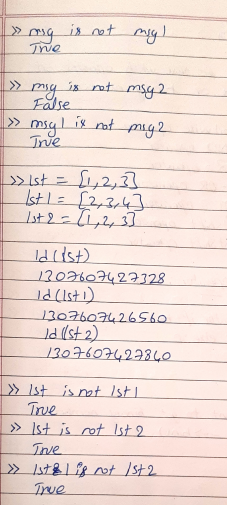 >> msg is not msg1
True
>> msg is not msg2
False
>> msg1 is not msg2
True
>> lst = [1,2,3]
lst1 = [2,3,4]
lst2 = [1,2,3]
id(lst)
1307607427328
id(lst1)
1307607426560
id(lst2)
1307607427840
>> lst is not lst1
True
>> lst is not lst2
True
>> lst1 is not lst2
True